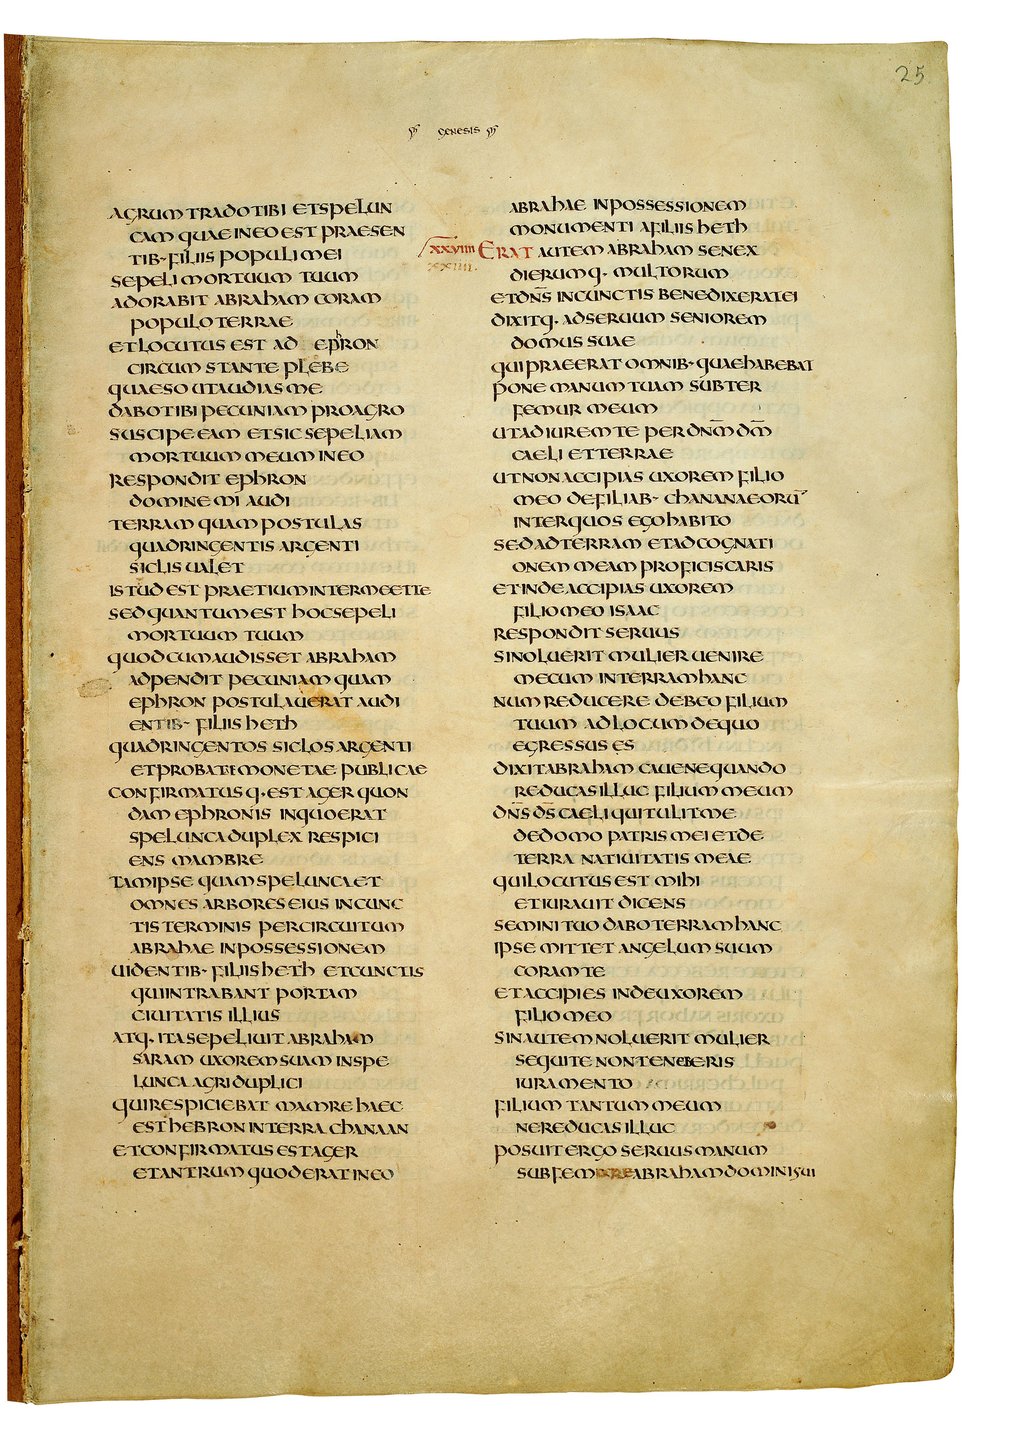 25
GENESIS
AGRUM TRADO TIBI ET SPELUN
CAM QUAE IN EO EST PRAESEN
TIB· FILIIS POPULI MEI
SEPELI MORTUUM TUUM
ADORABIT ABRAHAM CORAM
POPULO TERRAE
ET LOCUTUS EST AD EPhRON
CIRCUM STANTE PLEBE
QUAESO UT AUDIAS ME
DABO TIBI PECUNIAM PRO AGRO
SUSCIPE EAM ET SIC SEPELIAM
MORTUUM MEUM IN EO
RESPONDIT EPHRON
DOMINE MI AUDI
TERRAM QUAM POSTULAS
QUADRINGENTIS ARGENTI
SICLIS UALET
ISTUD EST PRAETIUM INTER ME ET TE
SED QUANTUM EST HOC SEPELI
MORTUUM TUUM
QUOD CUM AUDISSET ABRAHAM
ADPENDIT PECUNIAM QUAM
EPHRON POSTULAUERAT AUDI
ENTIB· FILIIS HETH
QUADRINGENTOS SICLOS ARGENTI
ET PROBATE MONETAE PUBLICAE
CONFIRMATUSQ· EST AGER QUON
DAM EPHRONIS IN QUO ERAT
SPELUNCA DUPLEX RESPICI
ENS MAMBRE
TAM IPSE QUAM SPELUNCA ET
OMNES ARBORES EIUS IN CUNC
TIS TERMINIS PER CIRCUITUM
ABRAHAE IN POSSESSIONEM
UIDENTIB· FILIIS HETH ET CUNCTIS
QUI INTRABANT PORTAM
CIUITATIS ILLIUS
ATQ· ITA SEPELIUIT ABRAHAM
SARAM UXOREM SUAM IN SPE
LUNCA AGRI DUPLICI
QUI RESPICIEBAT MAMRE HAEC
EST HEBRON IN TERRA CHANAAN
ET CONFIRMATUS EST AGER
ET ANTRUM QUOD ERAT IN EO
ABRAHAE IN POSSESSIONEM
MONUMENTI A FILIIS HETH
XXVIIII ERAT AUTEM ABRAHAM SENEX
XXIIII. DIERUMQ· MULTORUM
ET DN̄S IN CUNCTIS BENEDIXERAT EI
DIXITQ· AD SERUUM SENIOREM
DOMUS SUAE
QUI PRAEERAT OMNIB· QUAE HABEBAT
PONE MANUM TUAM SUBTER
FEMUR MEUM
UT ADIUREM TE PER DN̄M D̄M
CAELI ET TERRAE
UT NON ACCIPIAS UXOREM FILIO
MEO DE FILIAB· CHANANAEORŪ
INTER QUOS EGO HABITO
SED AD TERRAM ET AD COGNATI
ONEM MEAM PROFICISCARIS
ET INDE ACCIPIAS UXOREM
FILIO MEO ISAAC
RESPONDIT SERUUS
SI NOLUERIT MULIER UENIRE
MECUM IN TERRAM HANC
NUM REDUCERE DEBEO FILIUM
TUUM AD LOCUM DE QUO
EGRESSUS ES
DIXIT ABRAHAM CAUE NEQUANDO
REDUCAS ILLUC FILIUM MEUM
DN̄S D̄S CAELI QUI TULIT ME
DE DOMO PATRIS MEI ET DE
TERRA NATIUITATIS MEAE
QUI LOCUTUS EST MIHI
ET IURAUIT DICENS
SEMINI TUO DABO TERRAM HANC
IPSE MITTET ANGELUM SUUM
CORAM TE
ET ACCIPIES INDE UXOREM
FILIO MEO
SIN AUTEM NOLUERIT MULIER
SEQUI TE NON TENEBERIS
IURAMENTO
FILIUM TANTUM MEUM
NE REDUCAS ILLUC
POSUIT ERGO SERUUS MANUM
SUB FEMORE ABRAHAM DOMINI SUI